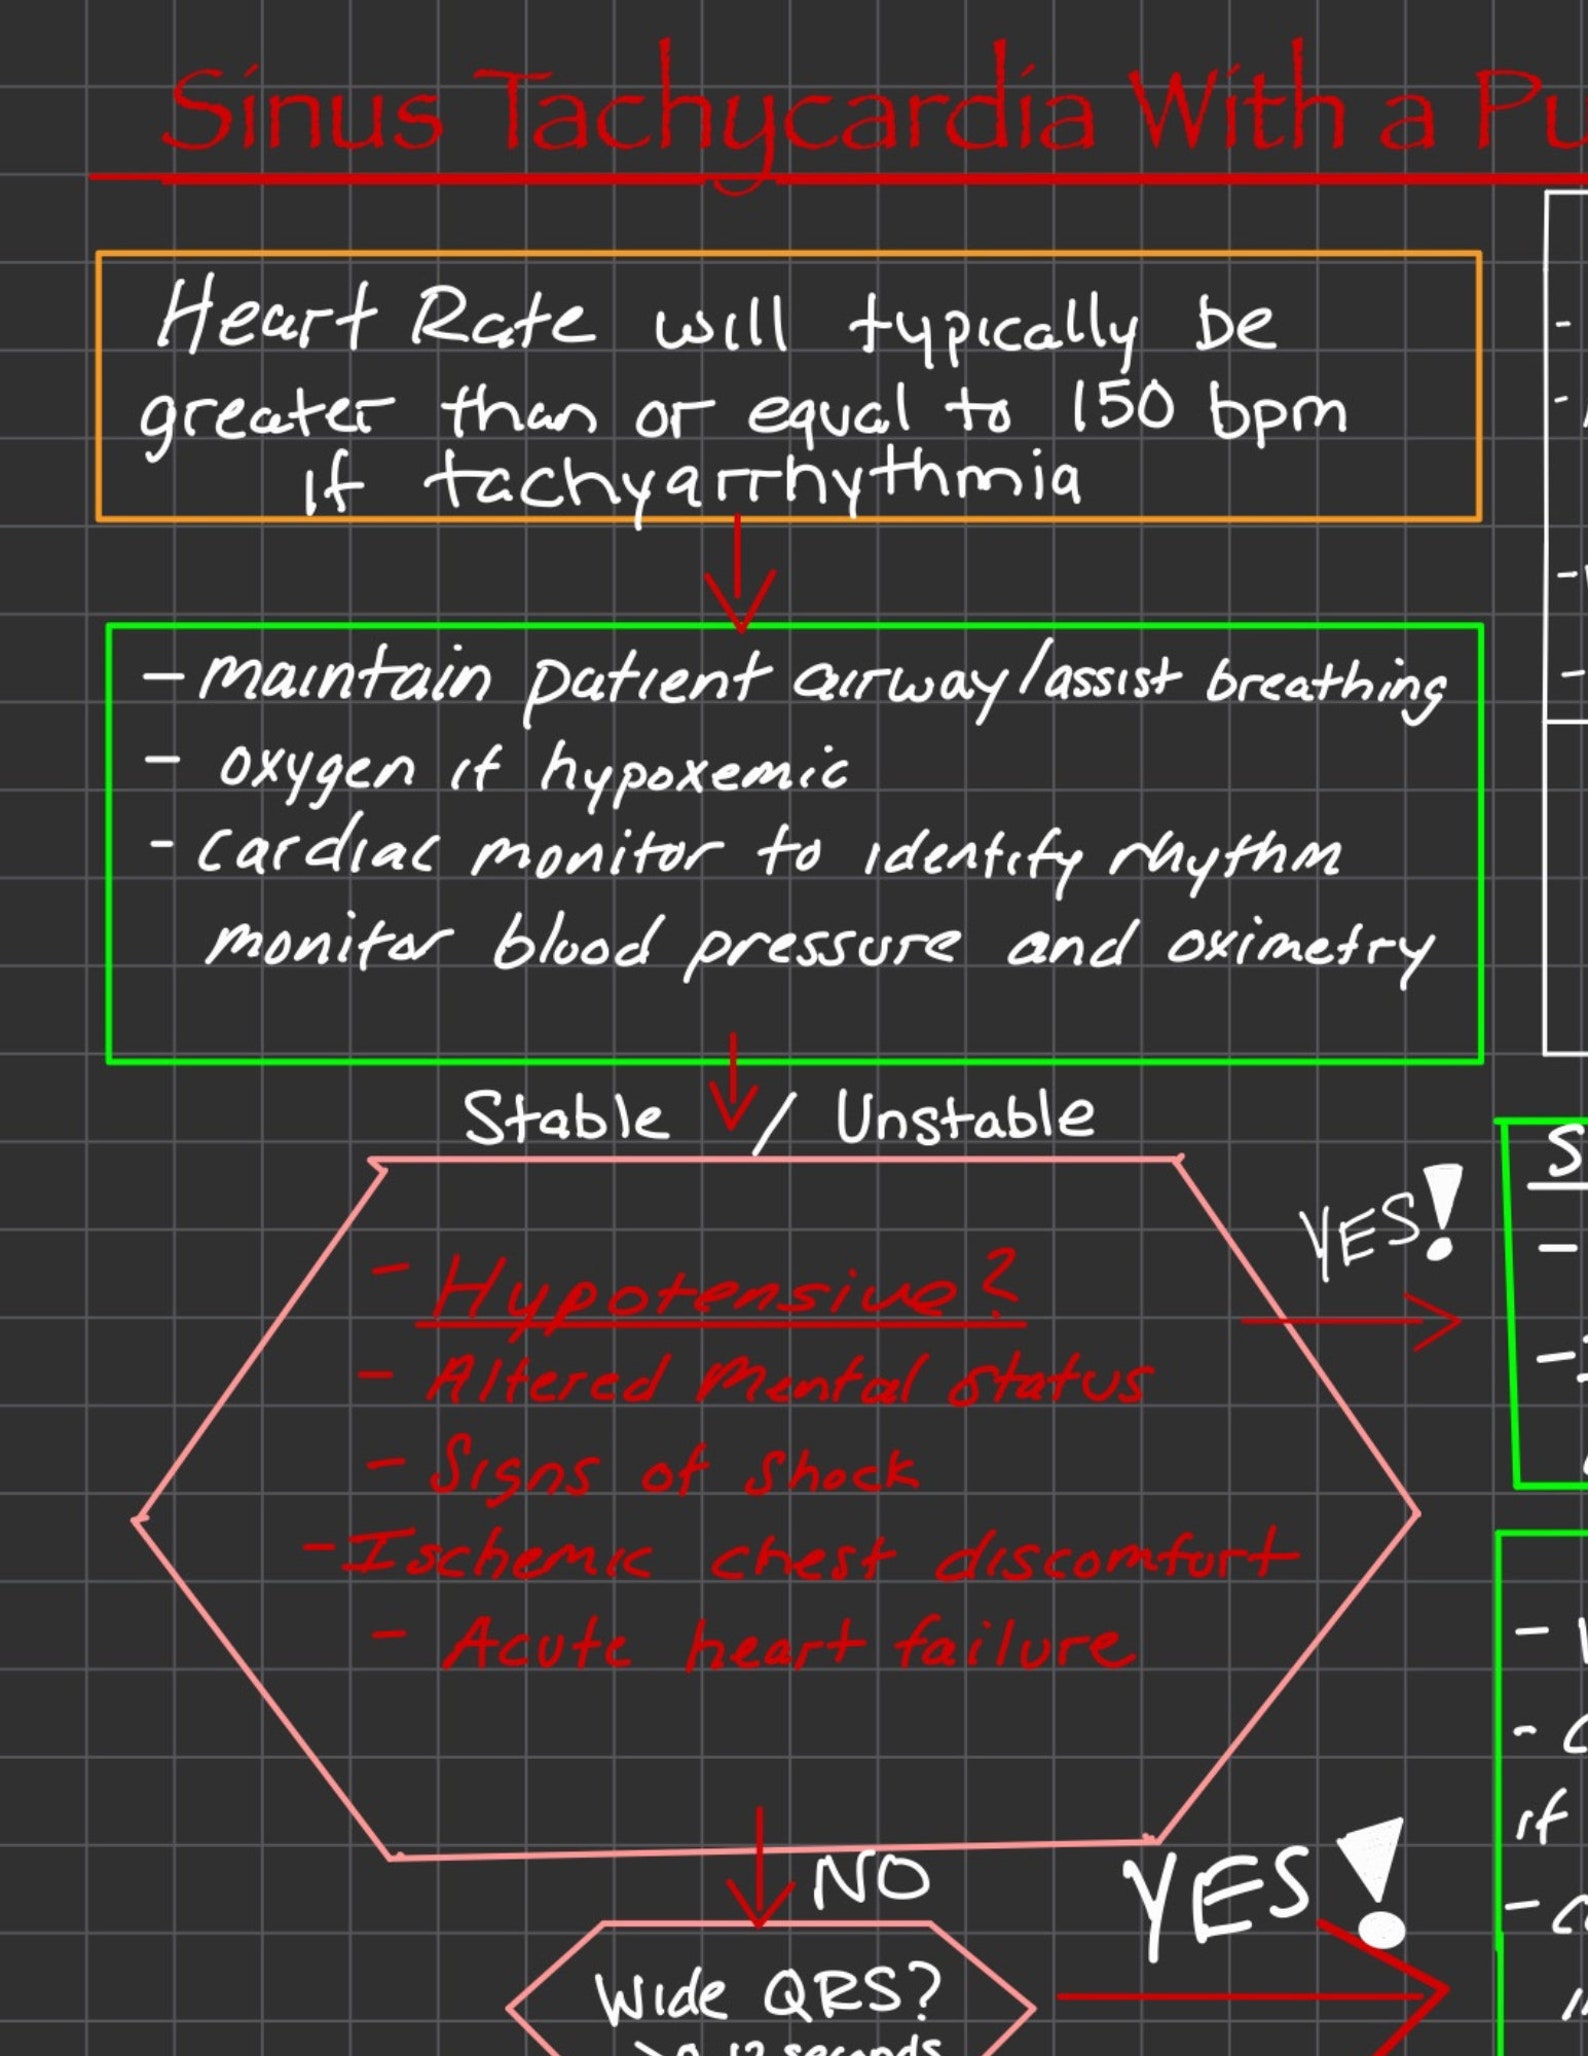 Sinus Tachycardia With a Pu
Heart Rate will typically be
greater than or equal to 150 bpm
if tachyarrhythmia
- maintain patient airway/assist breathing
- oxygen if hypoxemic
- cardiac monitor to identify rhythm
monitor blood pressure and oximetry
Stable / Unstable
YES!
- Hypotensive?
- Altered Mental status
- Signs of shock
- Ischemic chest discomfort
- Acute heart failure
NO
YES!
if
Wide QRS?
>0.12 seconds